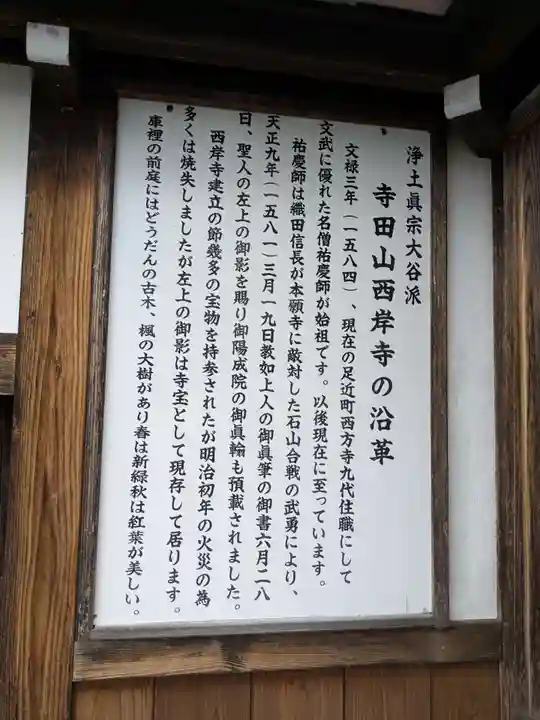 浄土眞宗大谷派
寺田山西岸寺の沿革
文禄三年（一五八四）、現在の足近町西方寺九代住職にして
文武に優れた名僧祐慶師が始祖です。以後現在に至っています。
祐慶師は織田信長が本願寺に敵対した石山合戦の武勇により、
天正九年（一五八一）三月一九日教如上人の御眞筆の御書六月二八
日、聖人の左上の御影を賜り御陽成院の御眞翰も預載されました。
西岸寺建立の節幾多の宝物を持参されたが明治初年の火災の為
多くは焼失しましたが左上の御影は寺宝として現存して居ります。
庫裡の前庭にはどうだんの古木、楓の大樹があり春は新緑秋は紅葉が美しい。